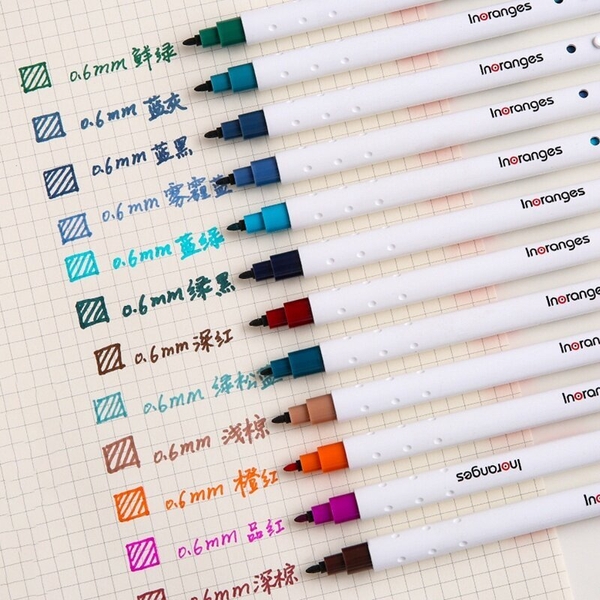 0.6mm 鲜绿
0.6mm 蓝灰
0.6mm 蓝黑
0.6mm 雾霾蓝
0.6mm 蓝绿
0.6mm 绿黑
0.6mm 深红
0.6mm 绿松
0.6mm 浅棕
0.6mm 橙红
0.6mm 品红
0.6mm 深棕
Inoranges
Inoranges
Inoranges
Inoranges
Inoranges
Inoranges
Inoranges
Inoranges